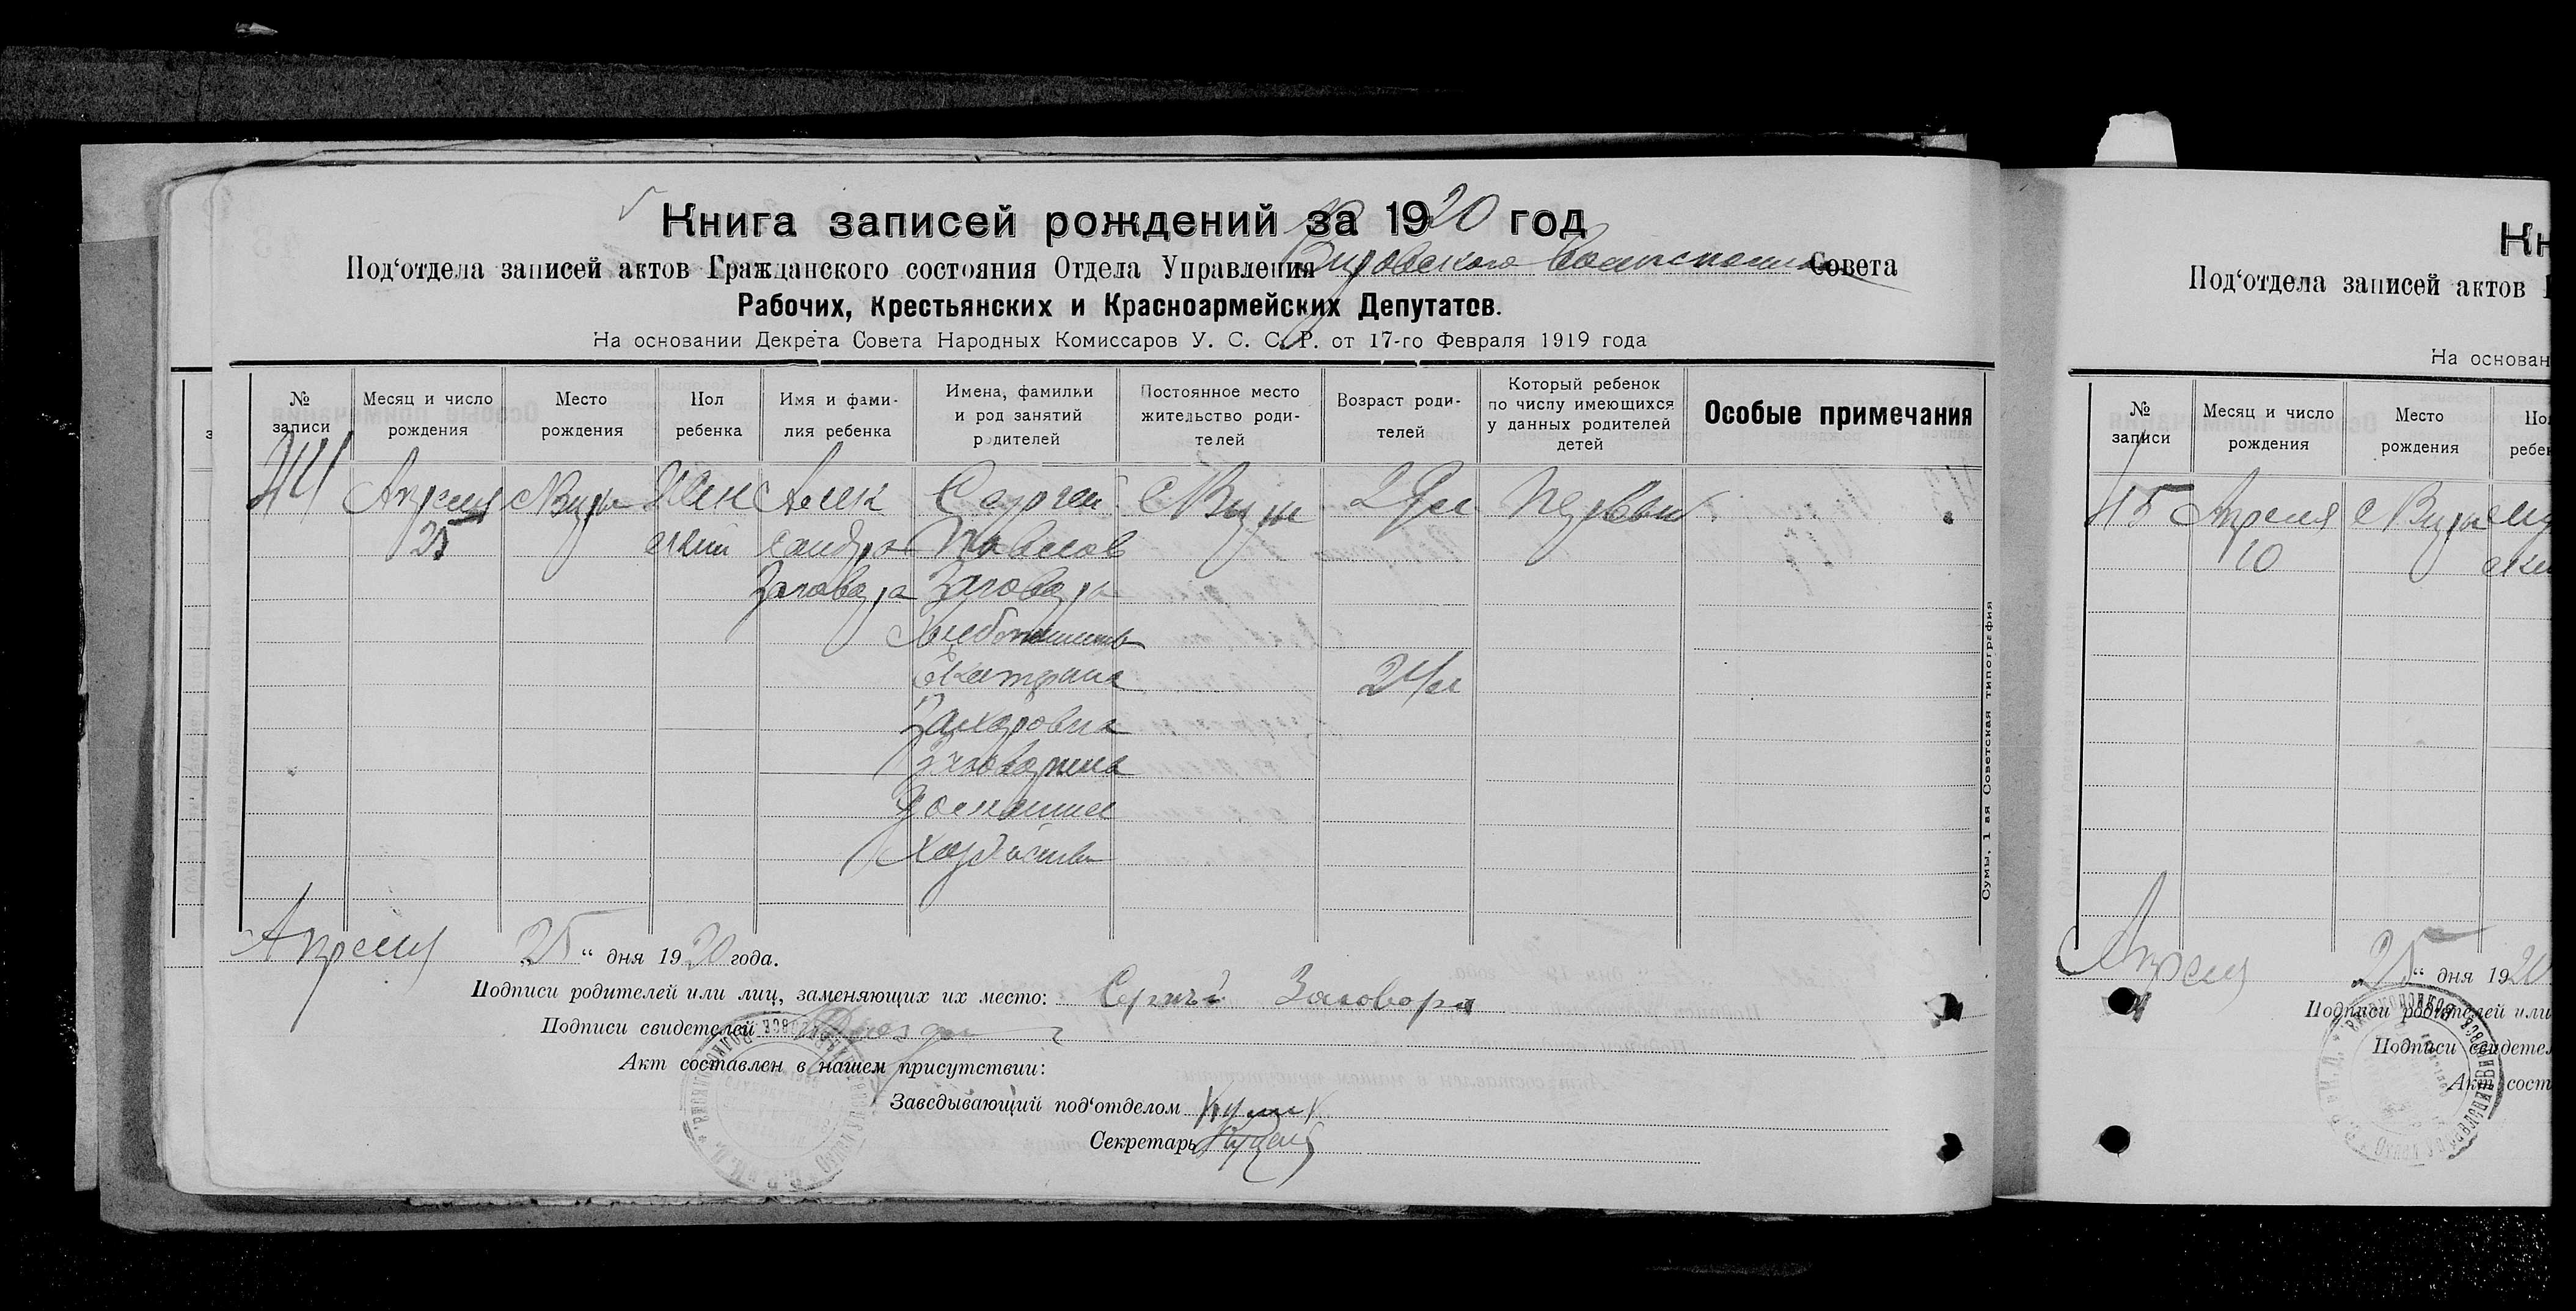 Книга записей рождений за 1920 год
Под‘отдела записей актов Гражданского состояния Отдела Управления Вировского Совета
Рабочих, Крестьянских и Красноармейских Депутатов.
На основании Декрета Совета Народных Комиссаров У. С. С. Р. от 17-го Февраля 1919 года
№ записи
Месяц и число рождения
Место рождения
Пол ребенка
Имя и фамилия ребенка
Имена, фамилии и род занятий родителей
Постоянное место жительство родителей
Возраст родителей
Который ребенок по числу имеющихся у данных родителей детей
Особые примечания
44 Апреля с Виры Жен Алек Сергей с Виры 29л Первый
25 ский сандра Павлов
Заговора Заговора
Хлебопашец
Екатерина 24л
Захаровна
Заговорина
Домашнее
Хозяйство
Апреля „25“ дня 1920 года.
Подписи родителей или лиц, заменяющих их место: Сергъй Заговора
Подписи свидетелей
Акт составлен в нашем присутствии:
Заведывающий под‘отделом
Секретарь
Сумы, 1 ая Советская типография
Кн
Под‘отдела записей актов
На основан
№ записи
Месяц и число рождения
Место рождения
По
ребе
45 Апреля с Виры
10
Апреля „25“ дня 1920
Подписи родителей или
Подписи свидете
Акт сост